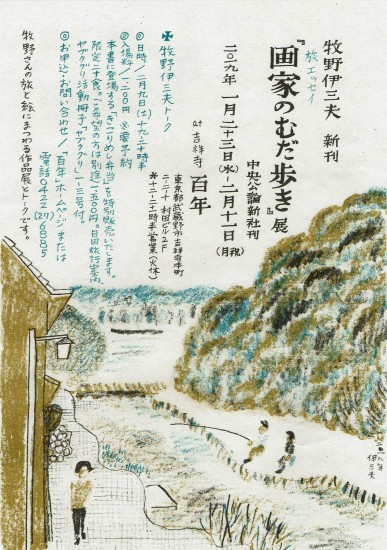 牧野伊三夫 新刊
旅エッセイ
『画家のむだ歩き』展
中央公論新社刊
二〇一九年 一月二十三日(水)-二月十一日(月祝)
at 吉祥寺 百年
東京都武蔵野市吉祥寺本町
二-二-十 村田ビル2F
※十二-二十時半営業(火休)
牧野伊三夫トーク
◎日時/二月九日(土)十九-二十時半
◎入場料/一二〇〇円 ※要予約
本書に登場する「きこりめし弁当」を特別販売いたします。
限定二十食。ご希望の方は別途一一五〇円。日田旅行案内、
ヤブクグリ活動冊子「ヤブクグリ」一-三号付。
◎お申込・お問い合わせ/「百年」ホームページまたは
電話0422(27)6885
牧野さんの旅と絵にまつわる作品展とトークです。
二〇一八年
伊三夫